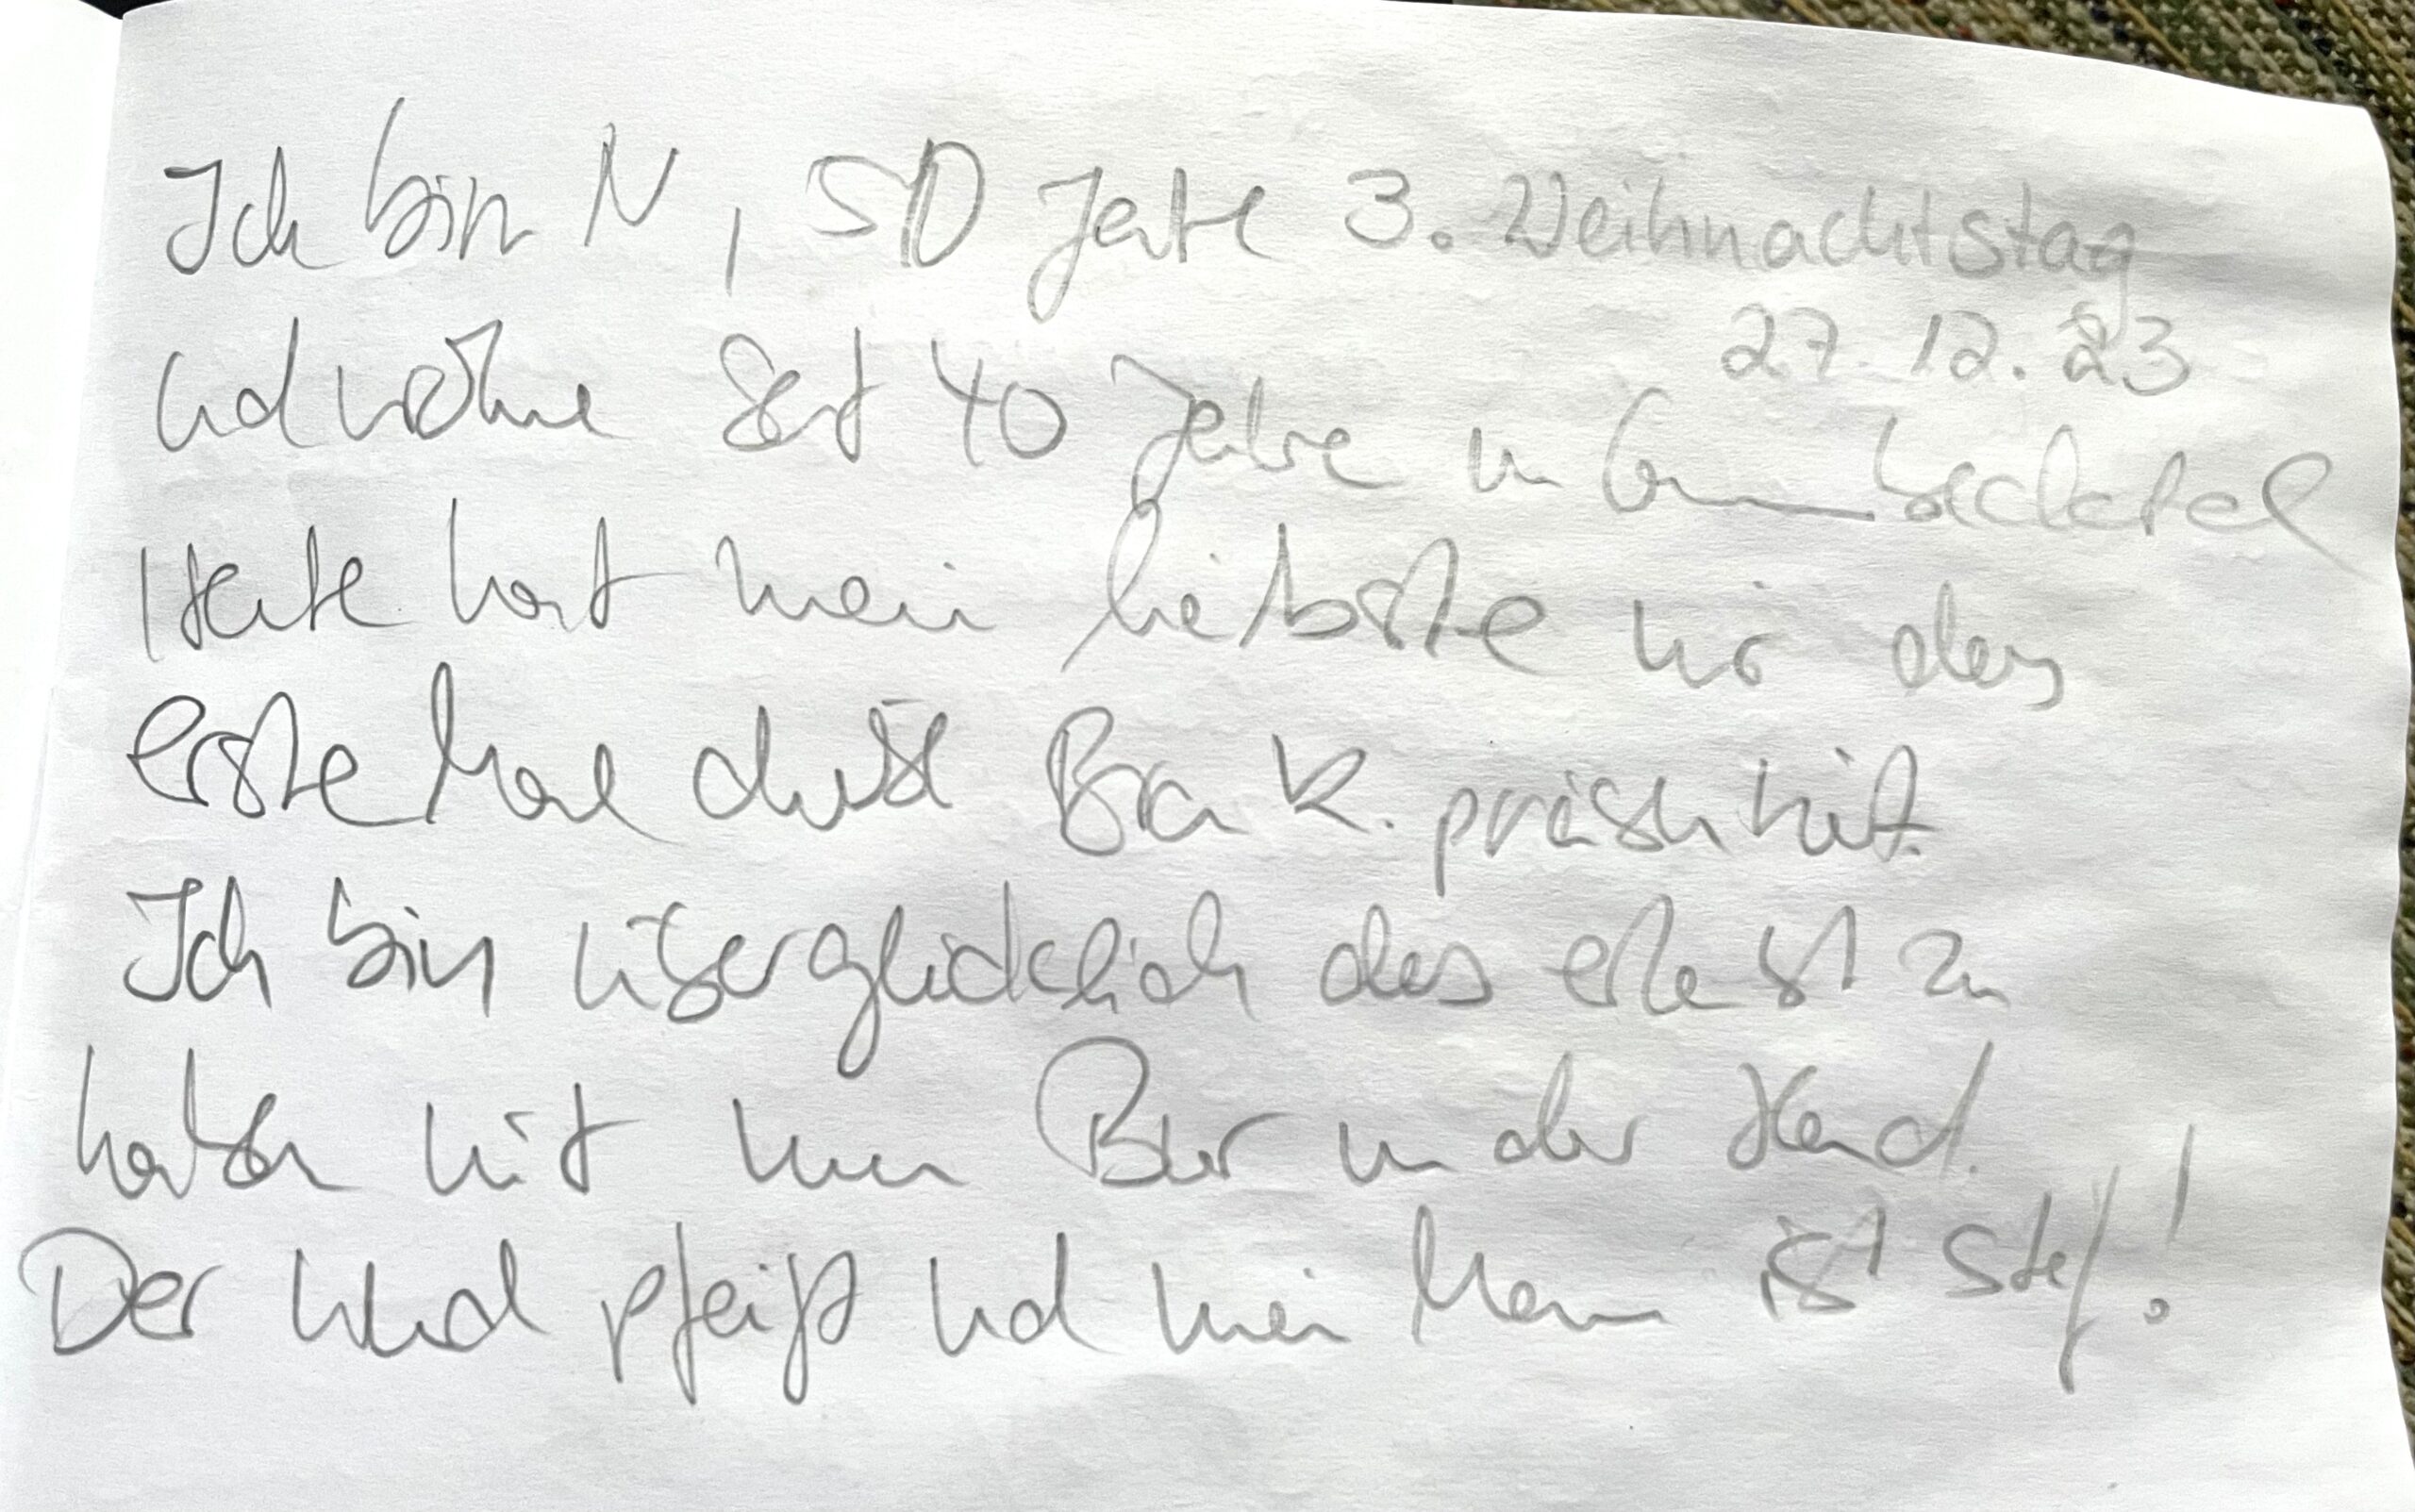 Ich bin N, 50 Jahre 3. Weihnachtstag
27.12.23
und wohne seit 40 Jahre in
Heute hat mein liebste mir das
erste Mal diese Bank präsentiert.
Ich bin überglücklich das erlebt zu
haben mit nem Bier in der Hand.
Der Wind pfeift und mein Mann ist steif!